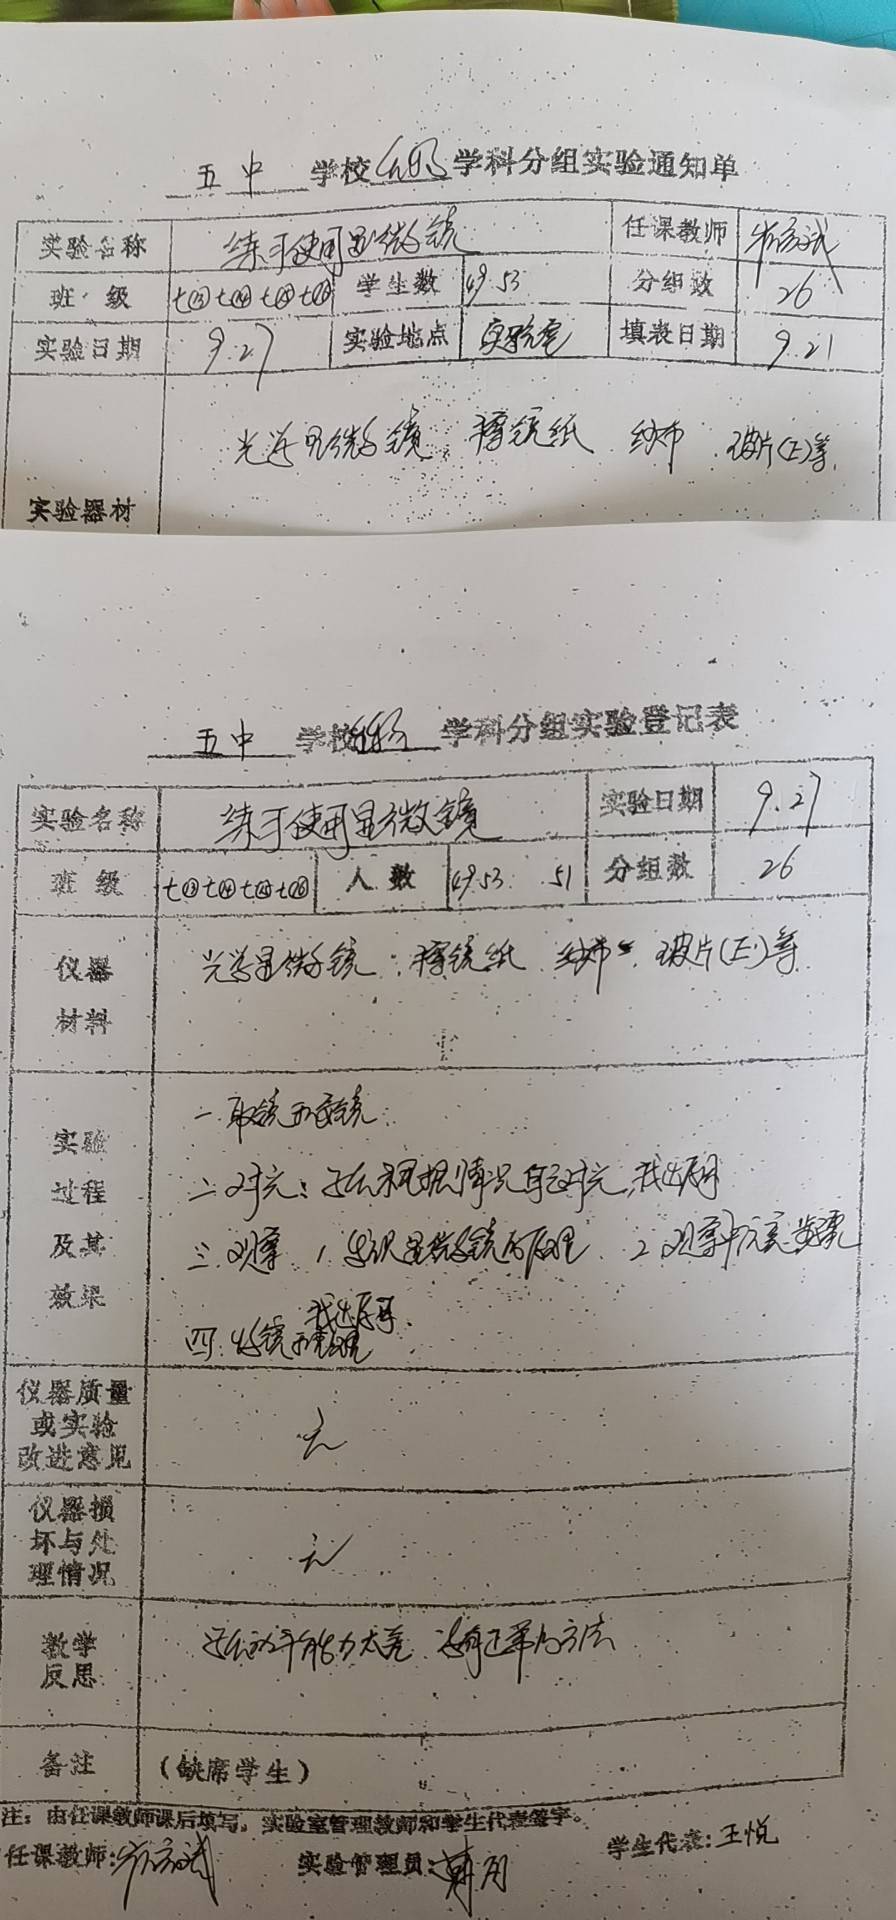 五中 学校 生物 学科分组实验通知单
实验名称 练习使用显微镜 任课教师
班级 七⑬七⑭七⑮七⑯ 学生数 49.53 分组数 26
实验日期 9.27 实验地点 实验室 填表日期 9.21
光学显微镜 擦镜纸 纱布 玻片(上)等
实验器材
五中 学校 生物 学科分组实验登记表
实验名称 练习使用显微镜 实验日期 9.27
班级 七⑬七⑭七⑮七⑯ 人数 49.53 51 分组数 26
仪器
材料
光学显微镜 擦镜纸 纱布 玻片(上)等
实验
过程
及其
效果
一.取镜和安镜
二.对光:学生根据情况自己对光,找出原因
三.观察 1.认识显微镜的原理 2.观察中元素
找出原因
四.收镜和整理
仪器质量
或实验
改进意见
无
仪器损
坏与处
理情况
无
教学
反思
学生动手能力太差 没有正确的方法
备注 (缺席学生)
注:由任课教师课后填写,实验室管理教师和学生代表签字。
任课教师: 实验管理员: 学生代表:王悦